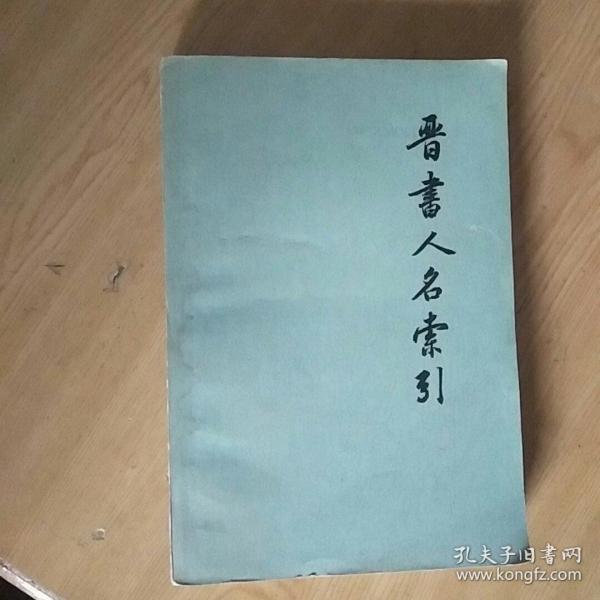 晋書人名索引
孔夫子旧書网
www.kongfz.com